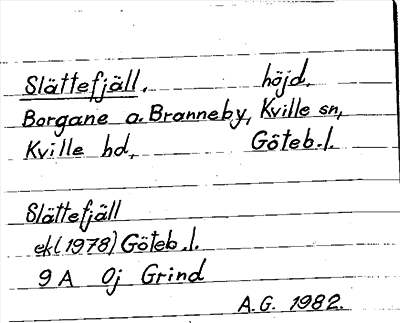 Slättefjäll. höjd,
Borgane a. Branneby, Kville sn,
Kville hd, Göteb.l.
Slättefjäll
ek (1978) Göteb.l.
9A 0j Grind
A.G. 1982.